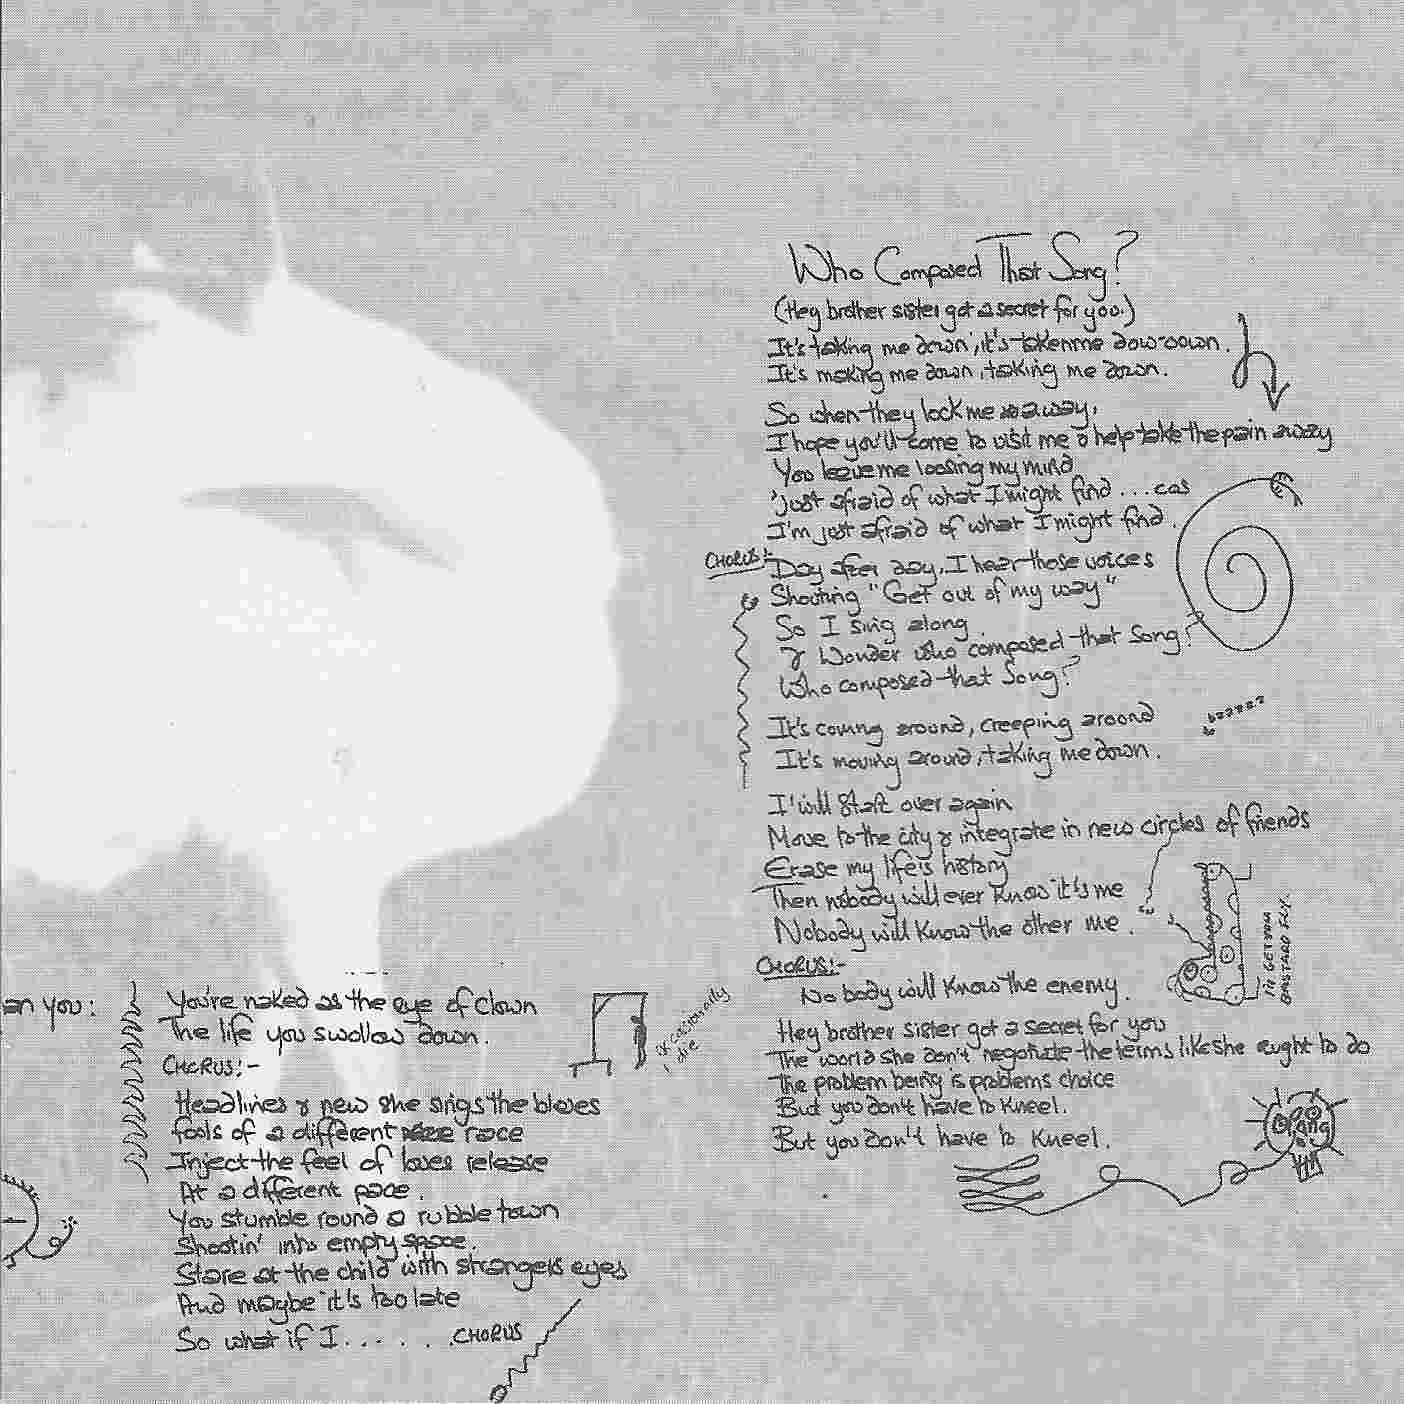 an you:
You're naked as the eye of clown
The life you swallow down.
CHORUS:-
Headlines & new she sings the blues
fools of a different race
Inject the feel of loves release
At a different pace.
You stumble round a rubble town
Shootin' into empty space.
Stare at the child with strangers eyes
And maybe it's too late
So what if I...... CHORUS
occasionally
I die
Who Composed That Song?
(Hey brother sister got a secret for you.)
It's taking me down, it's taken me dow-down.
It's making me down, taking me down.
So when they lock me away,
I hope you'll come to visit me & help take the pain away
You leave me loosing my mind
'just afraid of what I might find...cos
I'm just afraid of what I might find.
CHORUS:-
Day after day, I hear those voices
Shouting "Get out of my way"
So I sing along
& Wonder who composed that Song?
Who composed that Song?
It's coming around, creeping around
It's moving around, taking me down.
I will start over again
Move to the city & integrate in new circles of friends
Erase my life's history
Then nobody will ever know it's me
Nobody will know the other me.
I'll GET YOU
BASTARD FLY.
CHORUS:-
Nobody will know the enemy.
Hey brother sister got a secret for you
The world she don't negotiate the terms like she ought to do
The problem being is problems choice
But you don't have to kneel.
But you don't have to kneel.